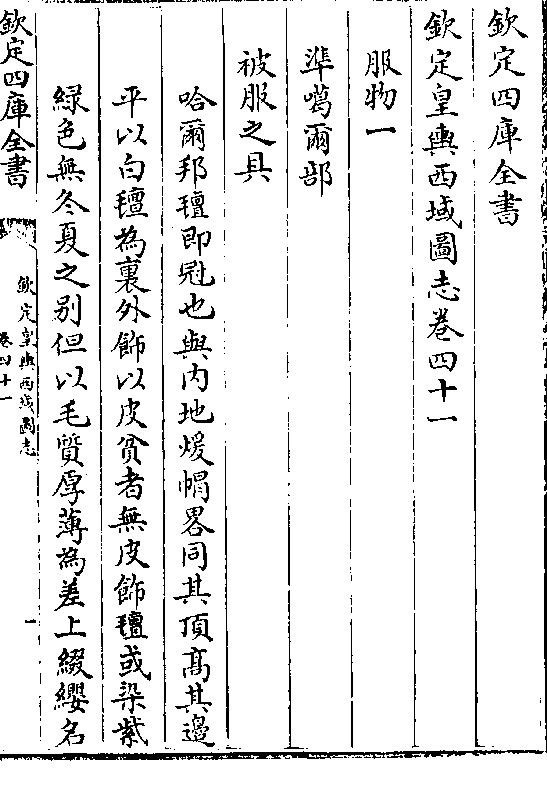 欽定四庫全書
欽定皇輿西域圖志卷四十一
服物一
準噶爾部
被服之具
哈爾邦氊即冠也與内地煖帽畧同其頂髙其邉
平以白氊為裏外飾以皮貧者無皮飾氊或染紫
緑色無冬夏之别但以毛質厚薄為差上綴纓名
欽定四庫全書
欽定皇輿西域圖志
卷四十一
一